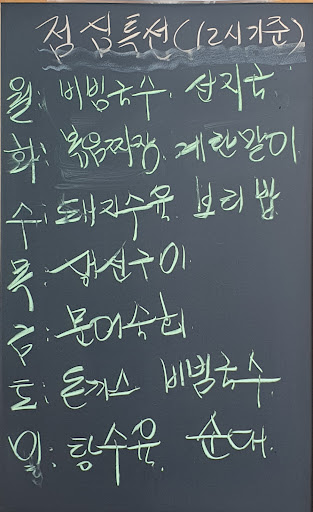 점심특선(12시기준)
월: 비빔국수. 선지국
화: 볶음짜장. 계란말이
수: 돼지수육. 보리밥
목: 생선구이
금: 문어숙회
토: 돈까스 비빔국수
일: 탕수육. 순대